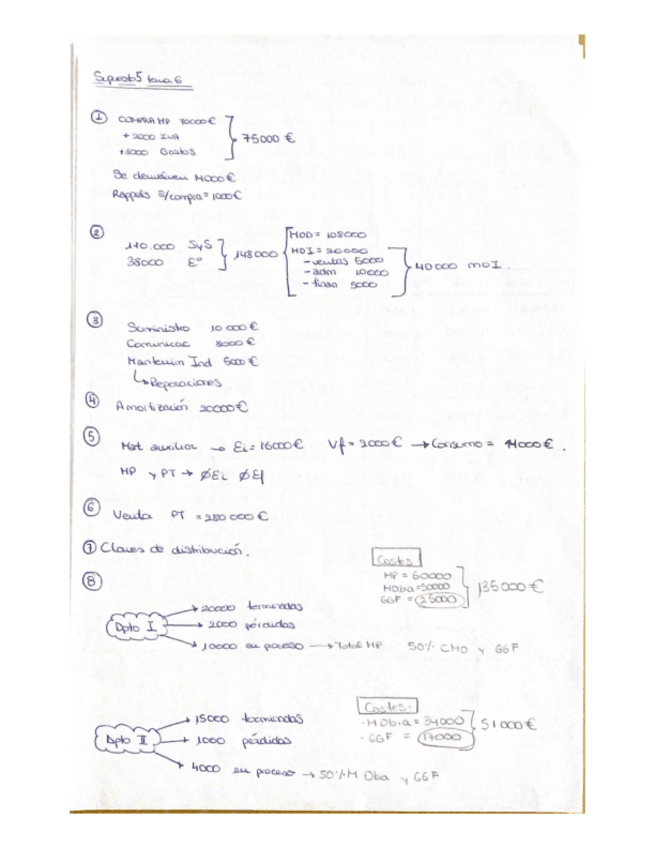 Supuesto 5 tema 6
① COMPRA MP 70000€
+ 2000 IVA
+3000 Gastos
75000 €
Se devuelven 14000€
Rappels S/compra = 1000€
②
110.000 SyS
38000 Eª
148000
MOD = 108000
MOI = 20000
- ventas 5000
- adm 10000
- finan 5000
40000 MOI.
③
Suministro 10 000 €
Comunicac 8000 €
Mantenim Ind 5000 €
↳ Reparaciones
④ Amortización 20000€
⑤
Mat auxiliar → Ei = 16000€ Vf = 2000 € → Consumo = 14000 €.
MP y PT → ∅Ei ∅Ef
⑥
Venta PT = 280 000 €
⑦ Claves de distribución.
⑧
Costes
MP = 60000
MObra = 50000
GGF = 25000
135000 €
Dpto I
→ 20000 terminadas
→ 2000 pérdidas
→ 10000 en proceso → Total MP 50% CMO y GGF
Costes.
· MObra = 34000
- GGF = 17000
51000 €
Dpto II
→ 15000 terminadas
→ 1000 pérdidas
→ 4000 en proceso → 50% M Oba y GGF